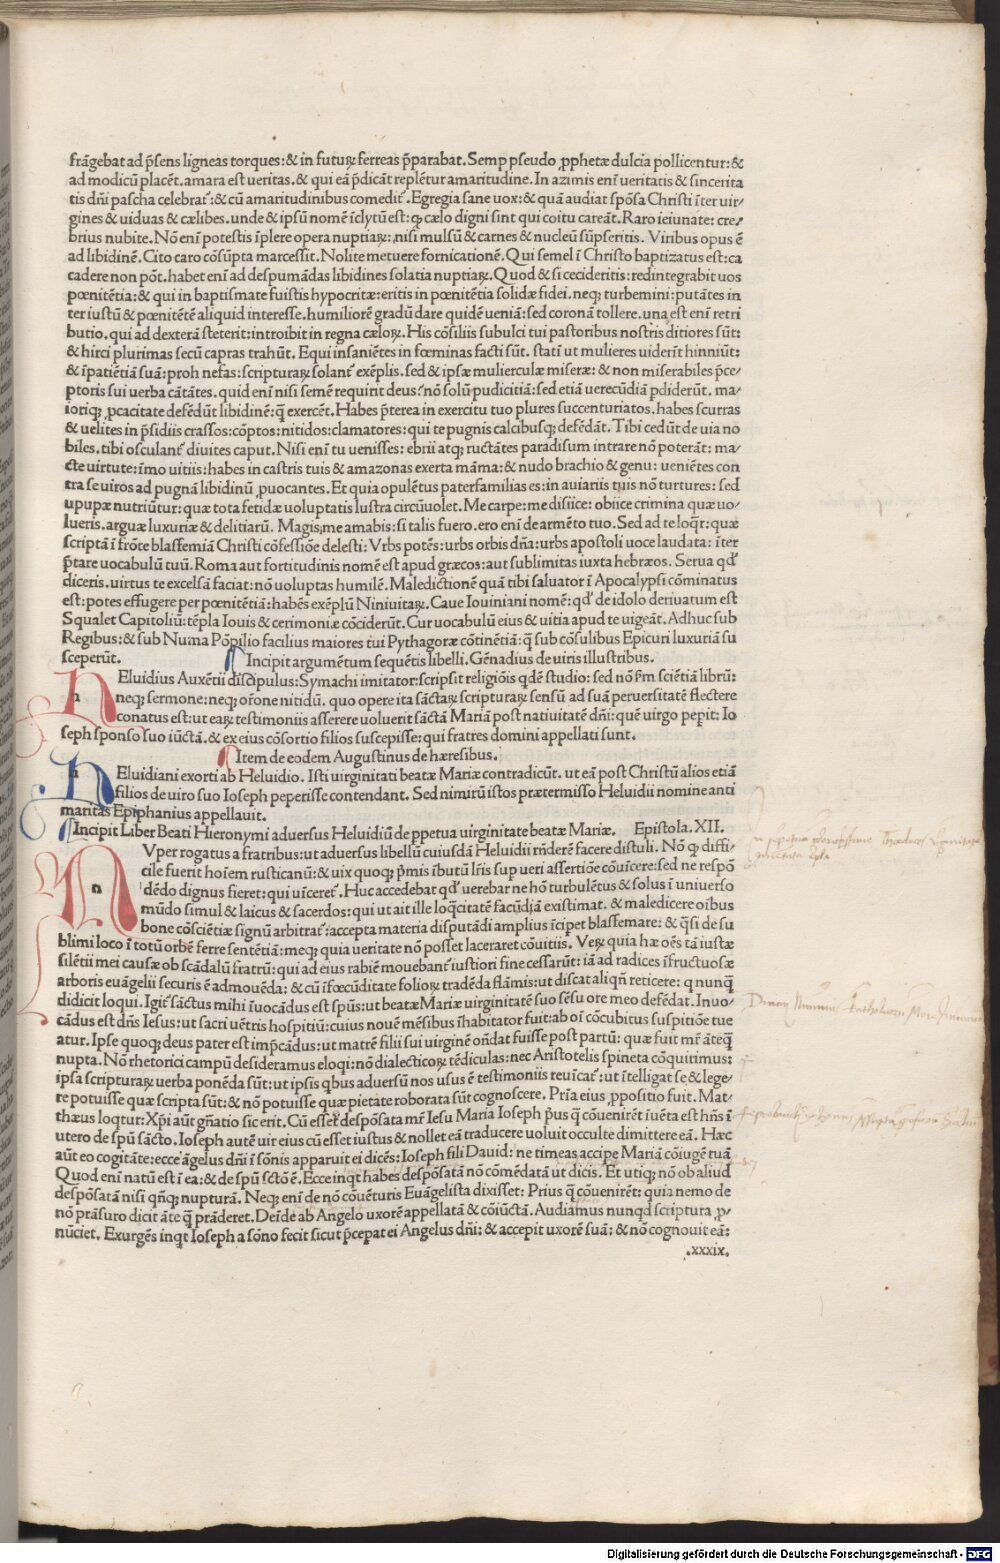 frāgebat ad p̄sens ligneas torques: & in futuꝝ ferreas p̄parabat. Semp pseudo ꝓphetæ dulcia pollicentur: &
ad modicū placēt. amara est ueritas. & qui eā p̄dicāt replētur amaritudine. In azimis enī ueritatis & sincerita
tis dn̄i pascha celebrat᷑: & cū amaritudinibus comedit᷑. Egregia sane uox: & quā audiat spōsa Christi īter uir⸗
gines & uiduas & cælibes. unde & ipsū nomē īclytū est: ꝙ cælo digni sint qui coitu careāt. Raro ieiunate: cre⸗
brius nubite. Nō enī potestis īplere opera nuptiaꝝ: nisi mulsū & carnes & nucleū sūpseritis. Viribus opus ē
ad libidinē. Cito caro cōsūpta marcessit. Nolite metuere fornicationē. Qui semel ī Christo baptizatus est: ca
cadere non pōt. habet enī ad despumādas libidines solatia nuptiaꝝ. Quod & si cecideritis: redintegrabit uos
pœnitētia: & qui in baptismate fuistis hypocritæ: eritis in pœnitētia solidæ fidei. neqꝫ turbemini: putātes in
ter iustū & pœnitētē aliquid interesse. humiliorē gradū dare quidē ueniā: sed coronā tollere. una est enī retri
butio. qui ad dexterā steterit: introibit in regna cæloꝝ. His cōsiliis subulci tui pastoribus nostris ditiores sūt:
& hirci plurimas secū capras trahūt. Equi insaniētes in fœminas facti sūt. statī ut mulieres uiderīt hinniūt:
& īpatiētiā suā: proh nefas: scripturaꝝ solant᷑ exēplis. sed & ipsæ mulierculæ miseræ: & non miserabiles p̄ce⸗
ptoris sui uerba cātātes. quid enī nisi semē requirit deus? nō solū pudicitiā: sed etiā uerecūdiā pdiderūt. ma⸗
ioriqꝫ ꝓcacitate defēdūt libidinē: q̄ exercēt. Habes p̄terea in exercitu tuo plures succenturiatos. habes scurras
& uelites in p̄sidiis crassos: cōptos: nitidos: clamatores: qui te pugnis calcibusqꝫ defēdāt. Tibi cedūt de uia no
biles. tibi osculant᷑ diuites caput. Nisi enī tu uenisses: ebrii atqꝫ ructātes paradisum intrare nō poterāt: ma⸗
cte uirtute: īmo uitiis: habes in castris tuis & amazonas exerta māma: & nudo brachio & genu: ueniētes con
tra se uiros ad pugnā libidinū ꝓuocantes. Et quia opulētus paterfamilias es: in auiariis tuis nō turtures: sed
upupæ nutriūtur: quæ tota fetidæ uoluptatis lustra circūuolet. Me carpe: me disiice: obiice crimina quæ uo⸗
lueris. arguæ luxuriæ & delitiarū. Magis me amabis: si talis fuero. ero enī de armēto tuo. Sed ad te loqr̄: quæ
scriptā ī frōte blasfemiā Christi cōfessiōe delesti: Vrbs potēs: urbs orbis dn̄a: urbs apostoli uoce laudata: īter
p̄tare uocabulū tuū. Roma aut fortitudinis nomē est apud græcos: aut sublimitas iuxta hebræos. Serua qd᷑
diceris. uirtus te excelsā faciat: nō uoluptas humilē. Maledictionē quā tibi saluator ī Apocalypsi cōminatus
est: potes effugere per pœnitētiā: habēs exēplū Niniuitaꝝ. Caue Iouiniani nomē: qd᷑ de idolo deriuatum est
Squalet Capitoliū: tēpla Iouis & cerimoniæ cōciderūt. Cur uocabulū eius & uitia apud te uigeāt. Adhuc sub
Regibus: & sub Numa Pōpilio facilius maiores tui Pythagoræ cōtinētiā: q̄ sub cōsulibus Epicuri luxuriā su
sceperūt. ¶ Incipit argumētum sequētis libelli. Gēnadius de uiris illustribus.
n Eluidius Auxētii discipulus: Symachi imitator: scripsit religiōis qdē studio: sed nō ſm sciētiā librū:
neqꝫ sermone: neqꝫ ōrone nitidū. quo opere ita sāctaꝝ scripturaꝝ sensū ad suā peruersitatē flectere
conatus est: ut eaꝝ testimoniis asserere uoluerit sāctā Mariā post natiuitatē dn̄i: quē uirgo pepit: Io
seph sponso suo iūctā. & ex eius cōsortio filios suscepisse: qui fratres domini appellati sunt.
¶ Item de eodem Augustinus de hæresibus.
h Eluidiani exorti ab Heluidio. Isti uirginitati beatæ Mariæ contradicūt. ut eā post Christū alios etiā
filios de uiro suo Ioseph peperisse contendant. Sed nimirū istos prætermisso Heluidii nomine anti
maritas Epiphanius appellauit.
¶ Incipit Liber Beati Hieronymi aduersus Heluidiū de ppetua uirginitate beatæ Mariæ. Epistola. XII.
n Vper rogatus a fratribus: ut aduersus libellū cuiusdā Heluidii rn̄derē facere distuli. Nō ꝙ diffi⸗
cile fuerit hoīem rusticanū: & uix quoqꝫ p̄mis ībutū lr̄is sup ueri assertiōe cōuīcere: sed ne respō
dēdo dignus fieret: qui uīceret᷑. Huc accedebat qd᷑ uerebar ne hō turbulētus & solus ī uniuerso
mūdo simul & laicus & sacerdos: qui ut ait ille loq̄citatē facūdiā existimat. & maledicere oībus
bone cōsciētiæ signū arbitrat᷑: accepta materia disputādi amplius īcipet blasfemare: & q̄si de su
blimi loco ī totū orbē ferre sentētiā: meqꝫ quia ueritate nō posset laceraret cōuitiis. Veꝝ quia hæ oēs tā iustæ
silētii mei causæ ob scādalū fratrū: qui ad eius rabiē mouebant᷑ iustiori fine cessarūt: iā ad radices īfructuosæ
arboris euāgelii securis ē admouēda: & cū īfœcūditate folioꝝ tradēda flāmis: ut discat aliqn̄ reticere: q nunq̄
didicit loqui. Igit᷑ sāctus mihi īuocādus est spūs: ut beatæ Mariæ uirginitatē suo sēsu ore meo defēdat. Inuo⸗
cādus est dn̄s Iesus: ut sacri uētris hospitiū: cuius nouē mēsibus īhabitator fuit: ab oī cōcubitus suspitiōe tue
atur. Ipse quoqꝫ deus pater est impcādus: ut matrē filii sui uirginē on̄dat fuisse post partū: quæ fuit mr̄ āteq̄
nupta. Nō rhetorici campū desideramus eloqi: nō dialecticoꝝ tēdiculas: nec Aristotelis spineta cōquirimus:
ipsa scripturaꝝ uerba ponēda sūt: ut ipsis qbus aduersū nos usus ē testimoniis reuīcat᷑: ut ītelligat se & lege⸗
re potuisse quæ scripta sūt: & nō potuisse quæ pietate roborata sūt cognoscere. Pria eius ꝓpositio fuit. Mat⸗
thæus loqtur: Xp̄i aūt gn̄atio sic erit. Cū esset despōsata mr̄ Iesu Maria Ioseph p̄us q̄ cōuenirēt īuēta est hn̄s ī
utero de spū sācto. Ioseph autē uir eius cū esset iustus & nollet eā traducere uoluit occulte dimittere eā. Hæc
aūt eo cogitāte: ecce āgelus dn̄i ī sōnis apparuit ei dicēs: Ioseph fili Dauid: ne timeas accipe Mariā cōiugē tuā
Quod enī natū est ī ea: & de spū sctō ē. Ecce inqt habes despōsatā nō cōmēdatā ut dicis. Et utiqꝫ nō ob aliud
despōsatā nisi qn̄qꝫ nupturā. Neqꝫ enī de nō cōuēturis Euāgelista dixisset: Prius q̄ cōuenirēt: quia nemo de
nō prāsuro dicit āte q̄ prāderet. Deīde ab Angelo uxorē appellatā & cōiūctā. Audiamus nunqd scriptura ꝓ⸗
nūciet. Exurgēs inqt Ioseph a sōno fecit sicut p̄cepat ei Angelus dn̄i: & accepit uxorē suā: & nō cognouit eā:
.xxxix.
Digitalisierung gefördert durch die Deutsche Forschungsgemeinschaft - DFG